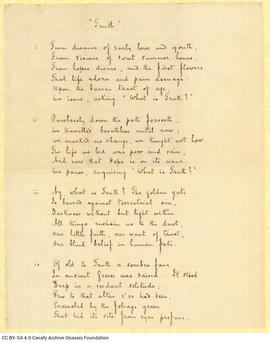 "Truth"
i
From dreams of early love and youth,
From visions of sweet summer hours,
From hopes divine, and the first flowers
That life adorn and pain assuage,
Upon the barren tract of age
We issue, asking "What is Truth?"
ii
Carelessly down the path forsooth,
We travelled breathless until now;
We marked no change, we thought not how
The life we led was poor and vain,
And now that Hope is on its wane
We pause, enquiring "What is Truth?"
iii
Ay, what is Truth? The golden gate
Is barred against terrestrial sin,
Darkness without but light within.
All things remain as the dust,
Our little faith, our want of trust,
Our blind belief in human fate.
iv
Of old to Truth a sombre fane
In ancient Greece was raised. It stood
Deep in a verdant solitude;
Few to that altar e'er had been,
Encircled by the foliage green
That hid its site from eyes profane.
CC BY-SA 4.0 Cavafy Archive Onassis Foundation